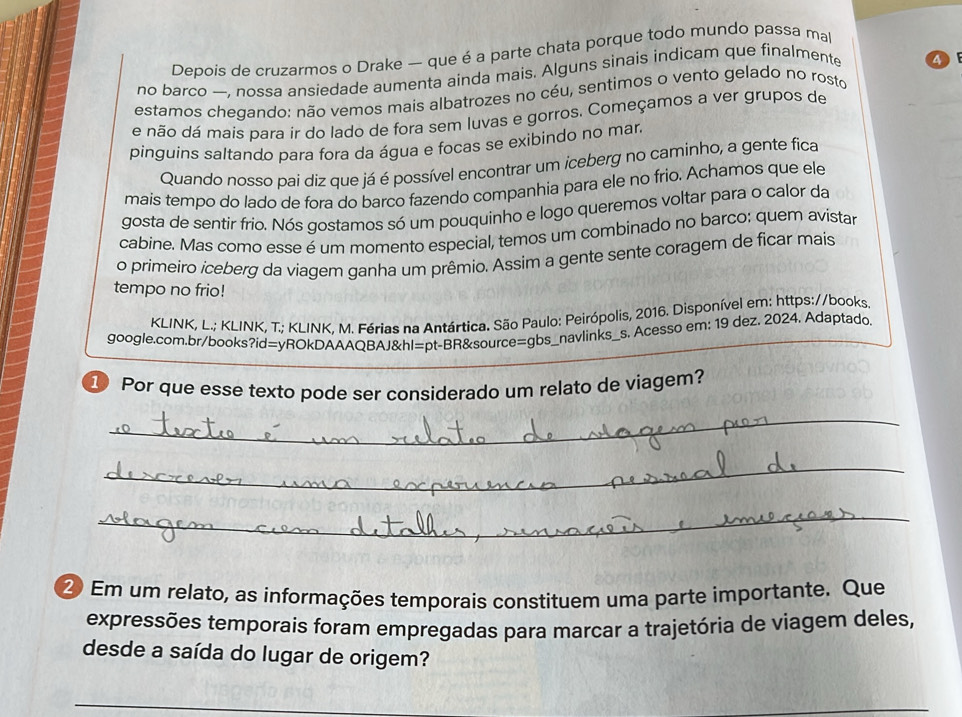 Depois de cruzarmos o Drake — que é a parte chata porque todo mundo passa mal
no barco —, nossa ansiedade aumenta ainda mais. Alguns sinais indicam que finalmente
estamos chegando: não vemos mais albatrozes no céu, sentimos o vento gelado no rosto
e não dá mais para ir do lado de fora sem luvas e gorros. Começamos a ver grupos de
pinguins saltando para fora da água e focas se exibindo no mar.
Quando nosso pai diz que já é possível encontrar um iceberg no caminho, a gente fica
mais tempo do lado de fora do barco fazendo companhia para ele no frio. Achamos que ele
gosta de sentir frio. Nós gostamos só um pouquinho e logo queremos voltar para o calor da
cabine. Mas como esse é um momento especial, temos um combinado no barco: quem avistar
o primeiro iceberg da viagem ganha um prêmio. Assim a gente sente coragem de ficar mais
tempo no frio!
KLINK, L.; KLINK, T.; KLINK, M. Férias na Antártica. São Paulo: Peirópolis, 2016. Disponível em: https://books.
google.com.br/books?id=yROkDAAAQBAJ&hl=pt-BR&source=gbs_navlinks_s. Acesso em: 19 dez. 2024. Adaptado.
1 Por que esse texto pode ser considerado um relato de viagem?
o texto é um relato de viagem por
descrever uma experiencia pessoal de
viagem com detalhes, sensações e emoções
2 Em um relato, as informações temporais constituem uma parte importante. Que
expressões temporais foram empregadas para marcar a trajetória de viagem deles,
desde a saída do lugar de origem?
4